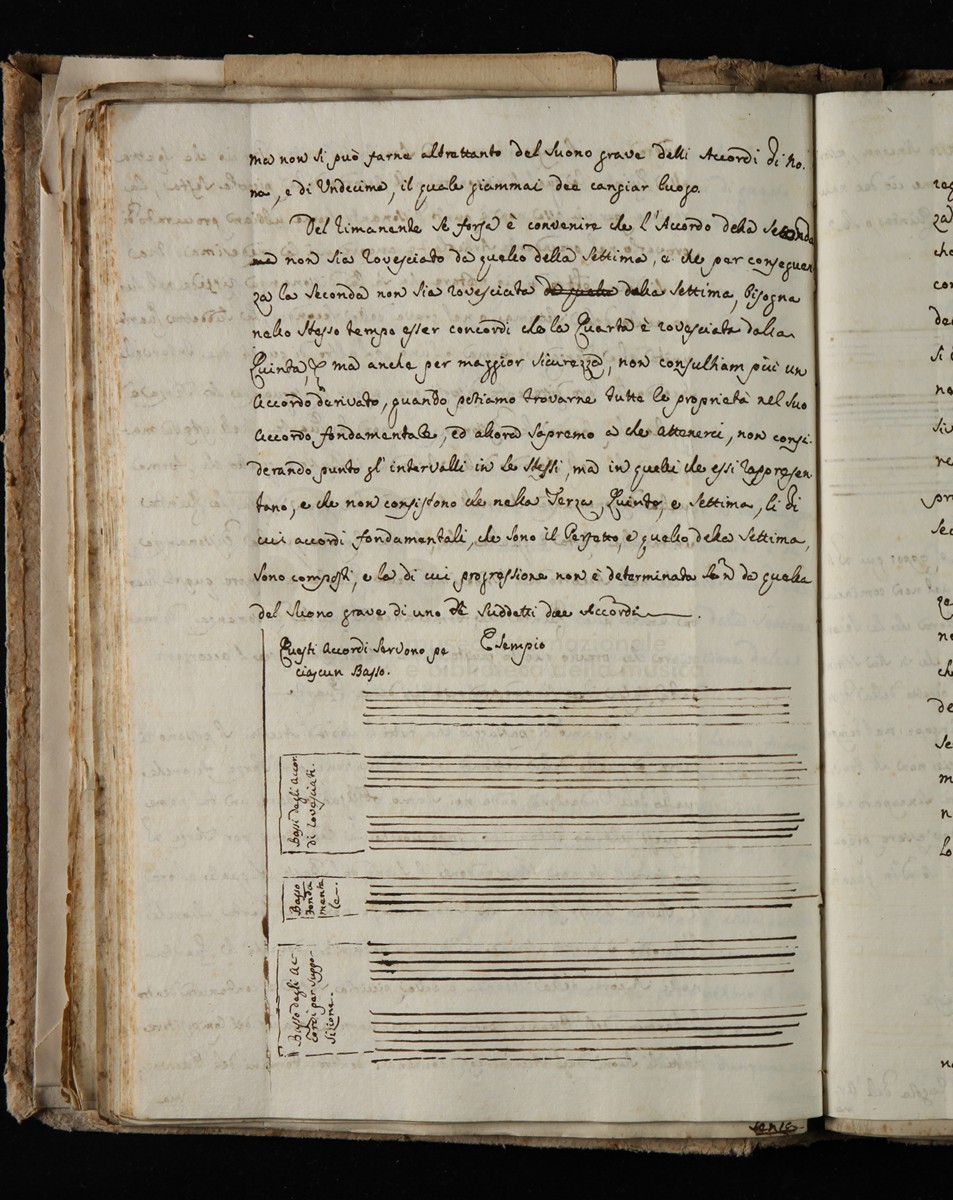 ma non si può farne altrettanto del Suono grave delli Accordi di No-
na, e di Undecima, il quale giammai dee cangiar luogo.
Del rimanente se forse è convenire che l'Accordo della Seconda
non sia rovesciato da quello della Settima, e che per conseguen
za la Seconda non sia rovesciata dalla Settima, bisogna
nello stesso tempo esser concordi che la Quarta è rovesciata dalla
Quinta, ma anche per maggior sicurezza, non consultiam più un
Accordo derivato, quando possiamo trovarne tutte le proprietà nel suo
Accordo fondamentale, ed allora sapremo a che attenerci, non consi-
derando punto gl'intervalli in se stessi, ma in quelli che essi rappresen-
tano, e che non consistono che nella Terza, Quinta, e Settima, li di
cui accordi fondamentali, che sono il Perfetto, e quello della Settima,
sono composti, e la di cui progressione non è determinata se non da quella
del Suono grave di uno de' suddetti due Accordi.
Questi Accordi servono pe
ciascun Basso.
Esempio
Bassi degli Accor
di rovesciati.
Basso
fonda
menta
le.
Basso degli Ac-
cordi per suppo-
sizione.